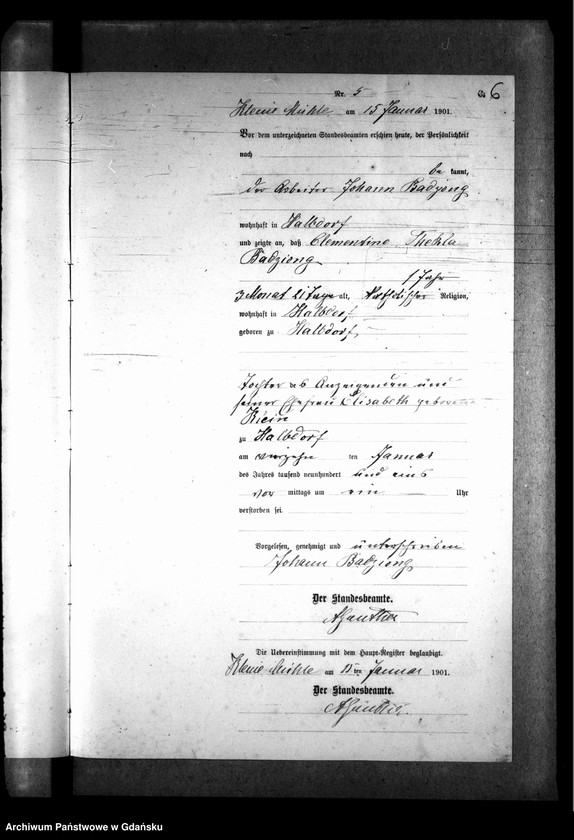 Nr. 5
C. 6
Kleine Mühle am 15 Januar 1901.
Vor dem unterzeichneten Standesbeamten erschien heute, der Persönlichkeit
nach
be kannt,
der Arbeiter Johann Badziong
wohnhaft in Halbdorf
und zeigte an, daß Clementine Thekla
Badziong
1 Jahr
3 Monat 21 Tage alt, katholischer Religion,
wohnhaft in Halbdorf
geboren zu Halbdorf,
Tochter des Anzeigenden und
seiner Ehefrau Elisabeth geborene
Klein
zu Halbdorf
am vierzehn ten Januar
des Jahres tausend neunhundert und eins
vor mittags um ein Uhr
verstorben sei.
Vorgelesen, genehmigt und unterschrieben
Johann Badziong
Der Standesbeamte.
Die Uebereinstimmung mit dem Haupt-Register beglaubigt.
Kleine Mühle am 15ten Januar 1901.
Der Standesbeamte.
Archiwum Państwowe w Gdańsku